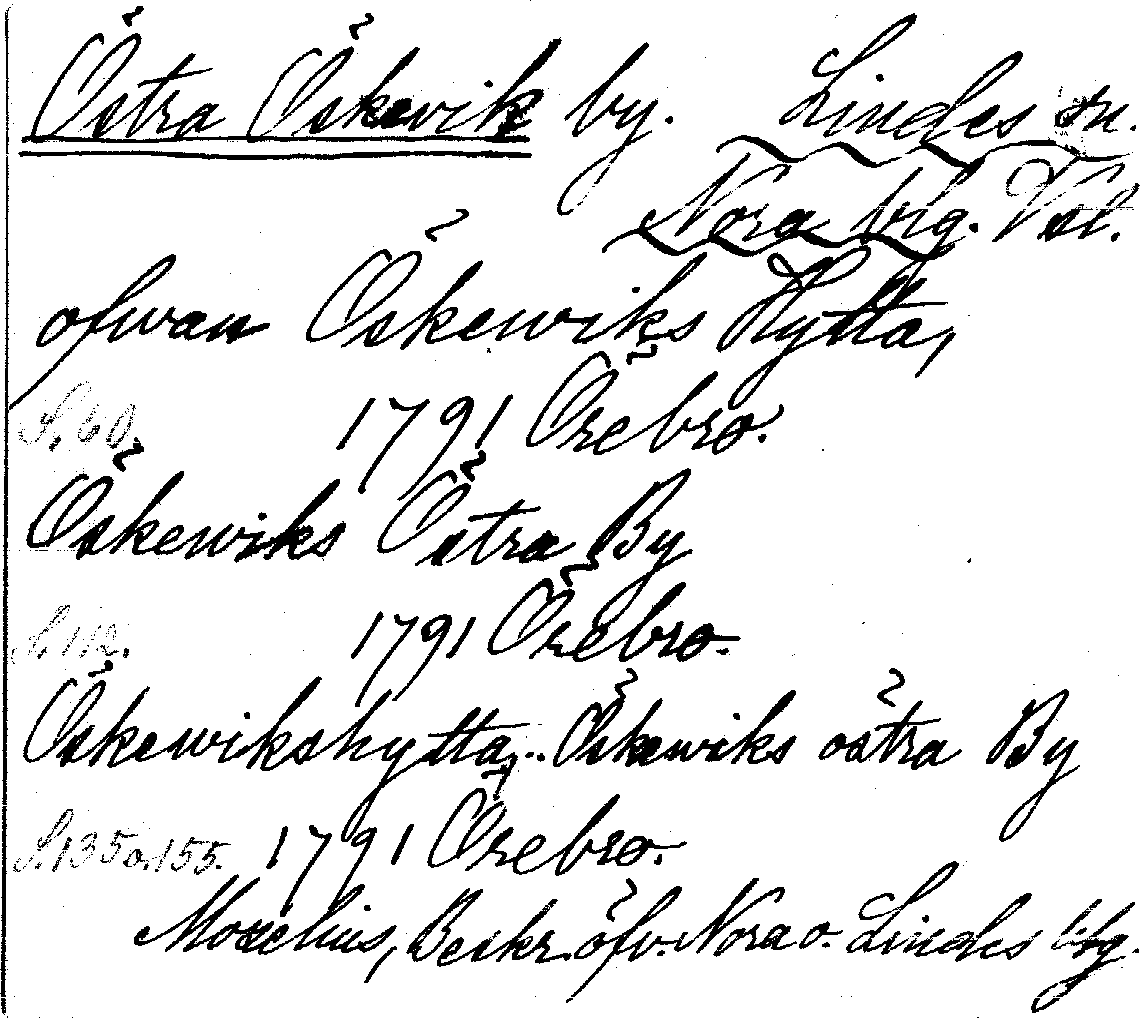 Östra Öskevik by. Lindes sn.
Nora brg. Vstl.
ofwan Öskewiks Hytta,
S. 60. 1791 Örebro.
Öskewiks Östra By
S. 112. 1791 Örebro.
Öskewikshytta,.. Öskewiks östra By
S. 135 o. 155. 1791 Örebro.
Morelius, Beskr. öfv. Nora o. Lindes bg.